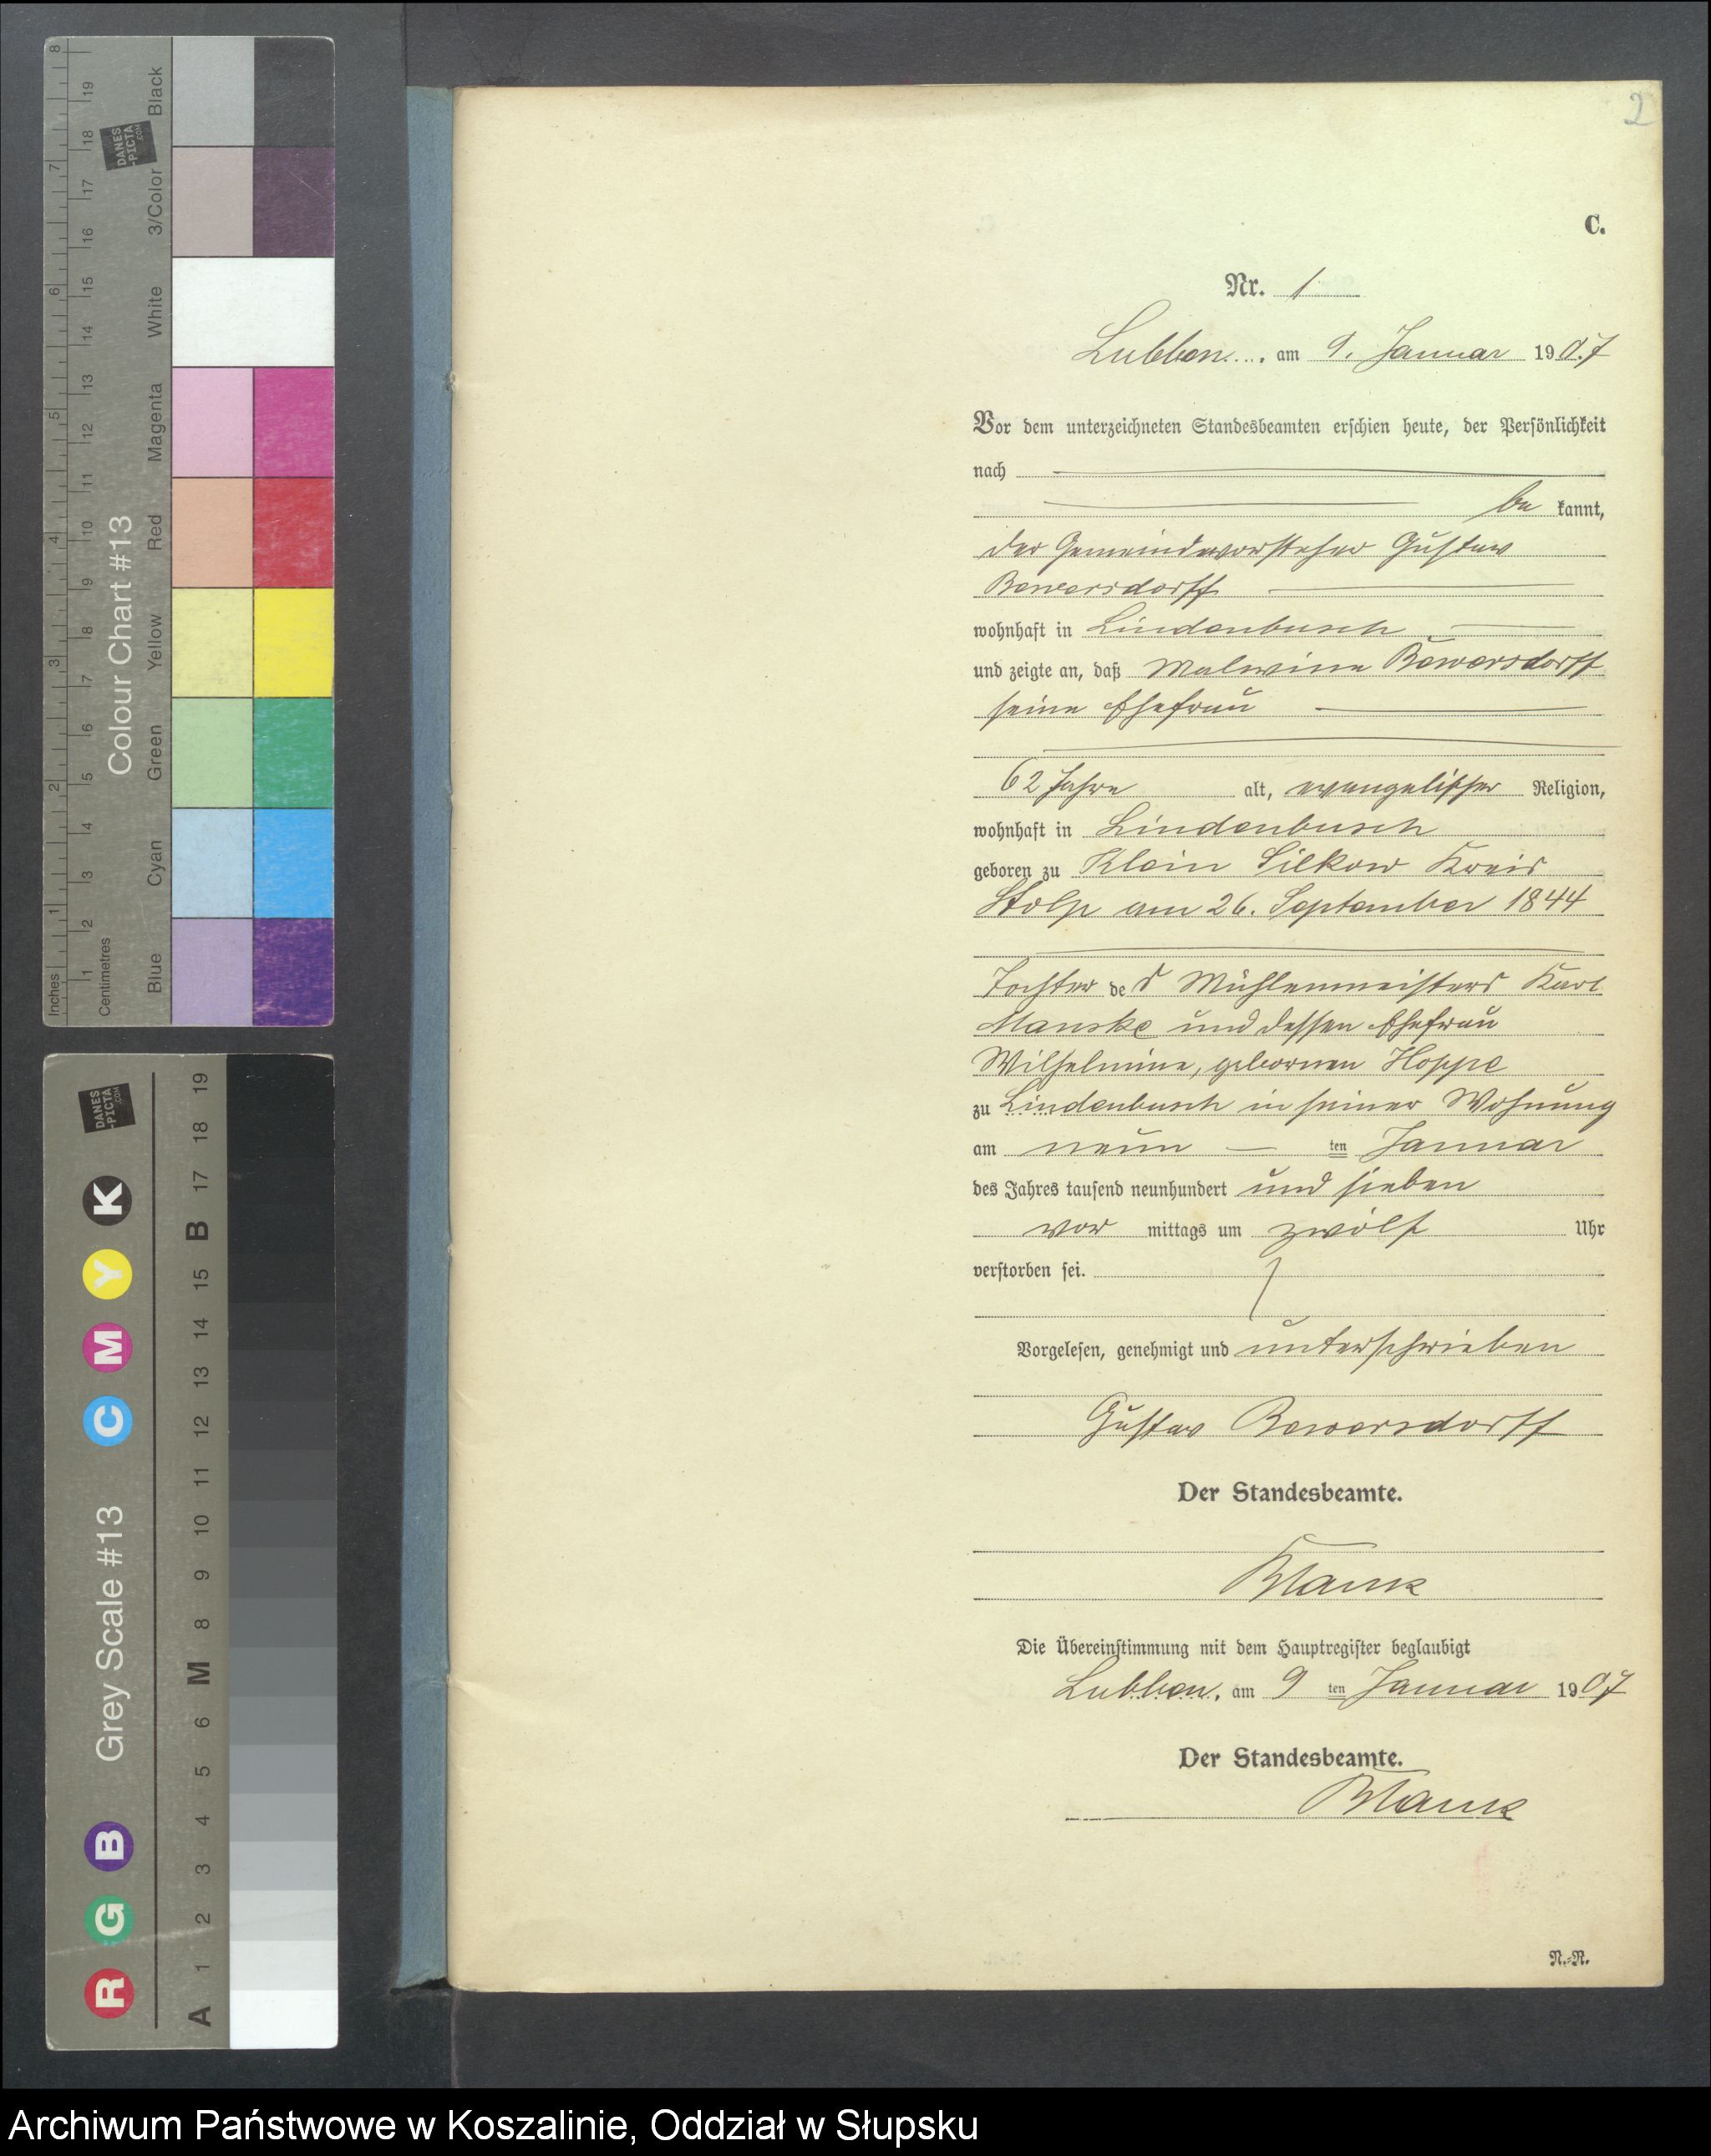 2
C.
Nr. 1
Lubben, am 9. Januar 1907
Vor dem unterzeichneten Standesbeamten erschien heute, der Persönlichkeit
nach
be kannt,
der Gemeindevorsteher Gustav
Bewersdorff
wohnhaft in Lindenbusch
und zeigte an, daß Malwine Bewersdorff
seine Ehefrau
62 Jahre alt, evangelischer Religion,
wohnhaft in Lindenbusch
geboren zu Klein Silkow Kreis
Stolp am 26. September 1844
Tochter des Mühlenmeisters Karl
Manske und dessen Ehefrau
Wilhelmine, geborenen Hoppe
zu Lindenbusch in seiner Wohnung
am neun ten Januar
des Jahres tausend neunhundert und sieben
vor mittags um zwölf Uhr
verstorben sei.
Vorgelesen, genehmigt und unterschrieben
Gustav Bewersdorff
Der Standesbeamte.
Die Übereinstimmung mit dem Hauptregister beglaubigt
Lubben, am 9 ten Januar 1907
Der Standesbeamte.
N.-R.
Colour Chart #13
Black
3/Color
White
Magenta
Red
Yellow
Green
Cyan
Blue
Inches 1 2 3 4 5 6 7 8
Centimetres 1 2 3 4 5 6 7 8 9 10 11 12 13 14 15 16 17 18 19
DANES
-PICTA
.COM
Grey Scale #13
R G B C M Y K
A 1 2 3 4 5 6 M 8 9 10 11 12 13 14 15 B 17 18 19
DANES
-PICTA
.COM
Archiwum Państwowe w Koszalinie, Oddział w Słupsku